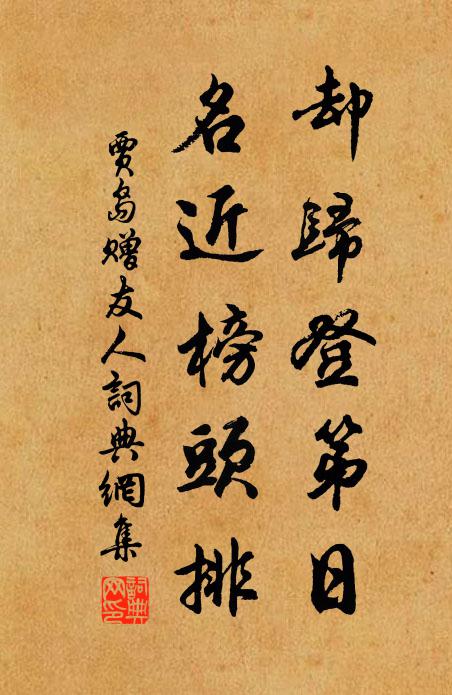 却歸登第日
名近榜頭排
賈島贈友人詞典網集
詞典网印